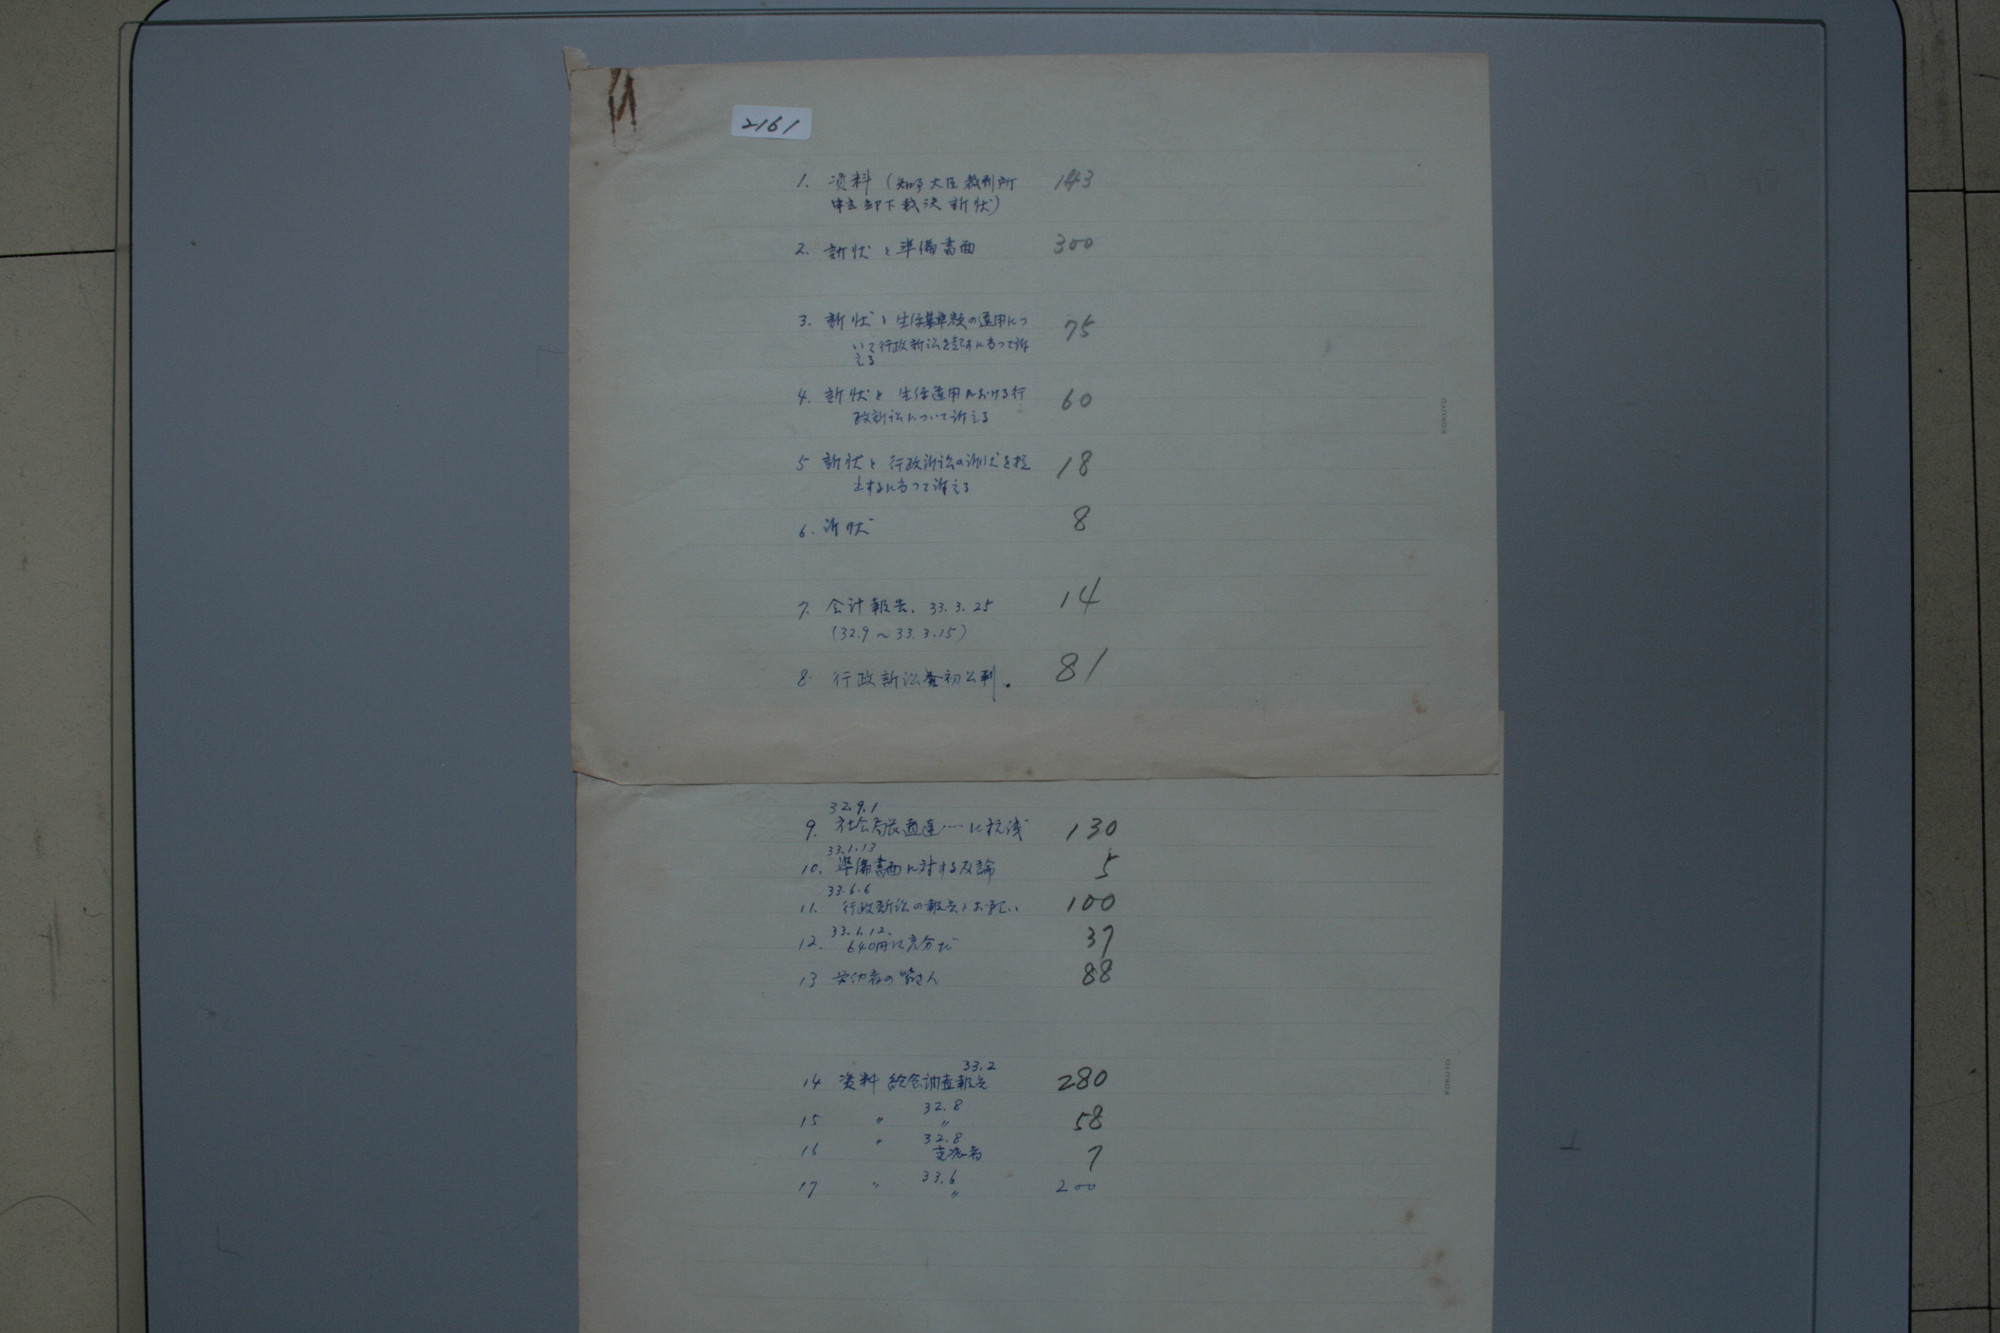 2161
1. 資料 (知事大臣裁判所 143
申立却下裁決 訴状)
2. 訴状と準備書面 300
3. 訴状と生保基準額の運用につ 75
いて行政訴訟を起すに当って訴
える
4. 訴状と 生保運用における行 60
政訴訟について訴える
5 訴状と 行政訴訟の訴状を提 18
出するに当って訴える
6. 訴状 8
7. 会計報告. 33.3.25 14
(32.9〜33.3.15)
8. 行政訴訟 初公判. 81
32.9.1
9. 社会局長通達……に抗議 130
33.1.13
10. 準備書面に対する反論 5
33.6.6
11. 行政訴訟の報告とお願い 100
33.6.12.
12. 640円は充分だ 37
13 労働者の皆さん 88
33.2
14 資料 総会調査報告 280
32.8
15 〃 〃 58
32.8
16 〃 7
33.6
17 〃 〃 200
KOKUYO
KOKUYO